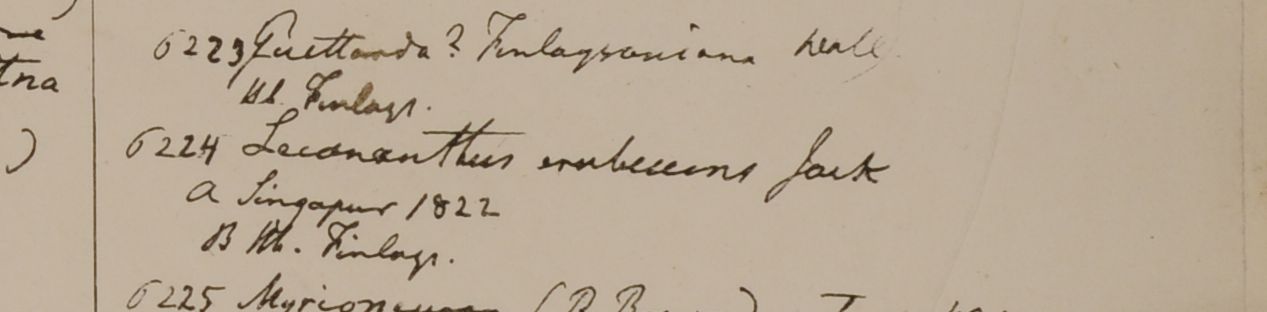 tna
6223 Guettarda? Finlaysoniana Wall
Hb. Finlays.
6224 Lecananthus erubescens Jack
a Singapur 1822
B Hb. Finlays.
6225